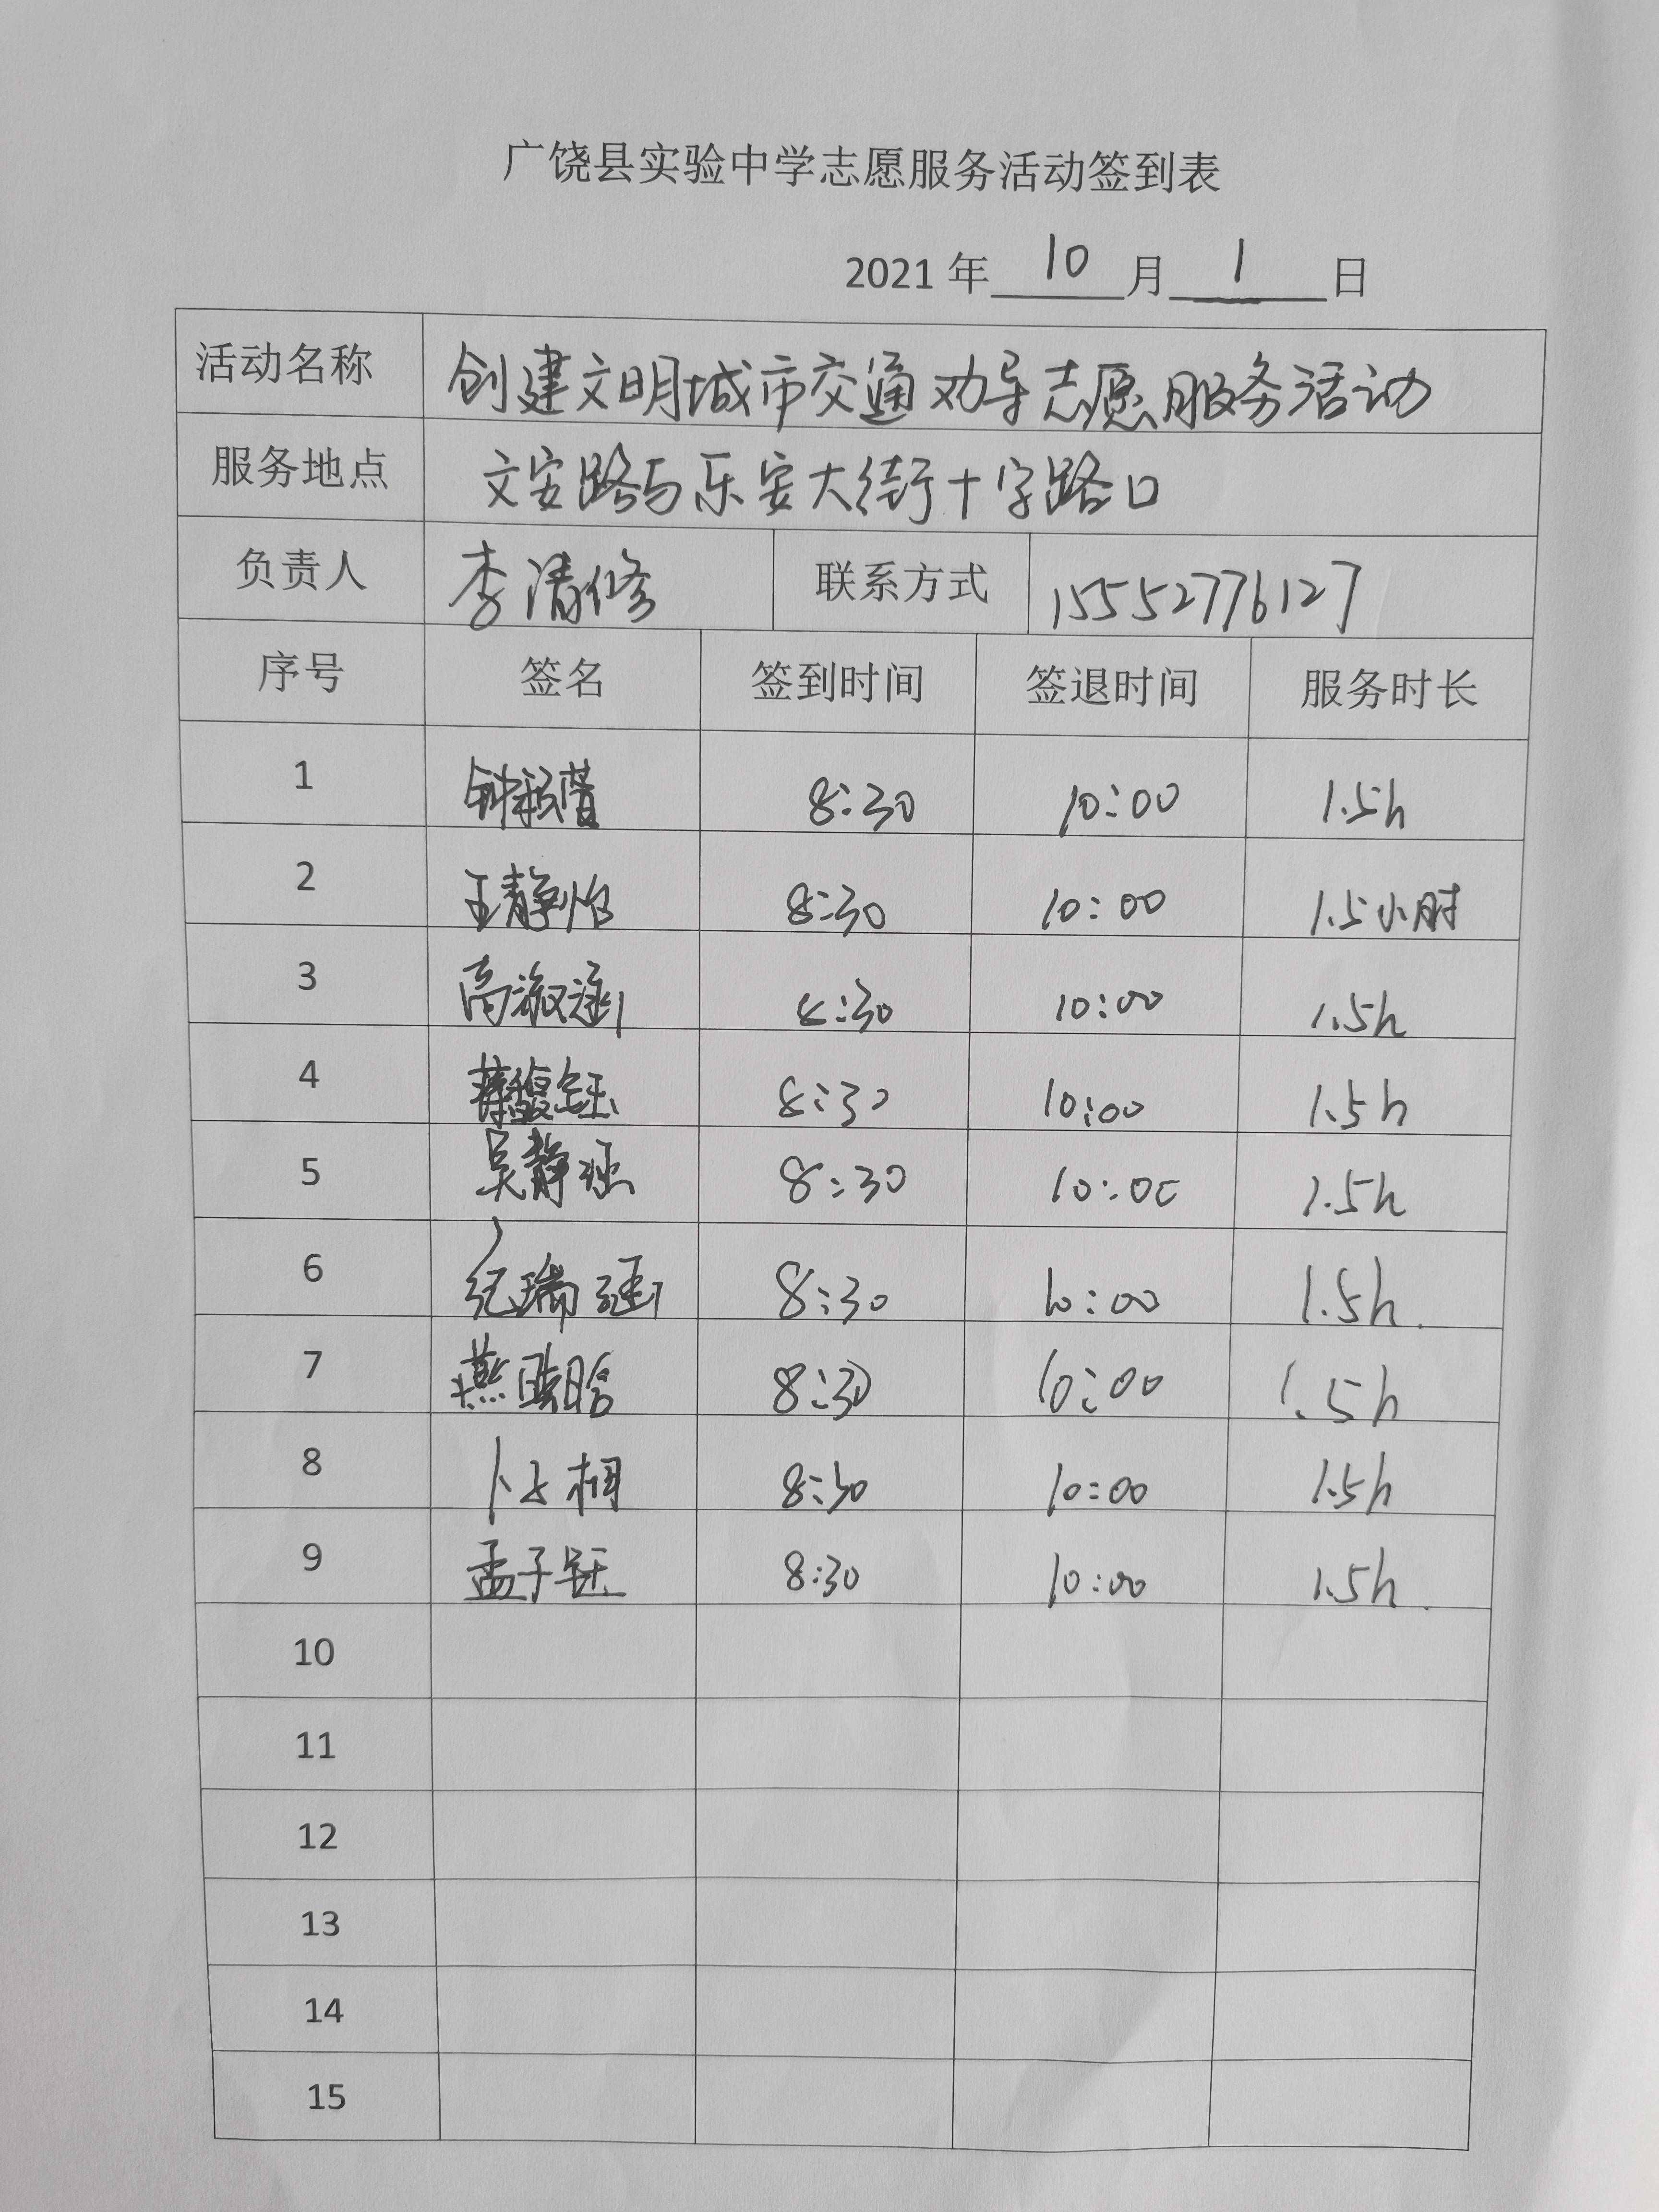 广饶县实验中学志愿服务活动签到表
2021 年 10 月 1 日
活动名称 创建文明城市交通劝导志愿服务活动
服务地点 文安路与乐安大街十字路口
负责人 李清修 联系方式 15552776127
序号 签名 签到时间 签退时间 服务时长
1 8:30 10:00 1.5h
2 王静怡 8:30 10:00 1.5小时
3 高淑涵 8:30 10:00 1.5h
4 8:30 10:00 1.5h
5 吴静 8:30 10:00 1.5h
6 纪瑞涵 8:30 10:00 1.5h.
7 燕 晗 8:30 10:00 1.5h
8 卜 8:30 10:00 1.5h
9 孟子钰 8:30 10:00 1.5h.
10
11
12
13
14
15